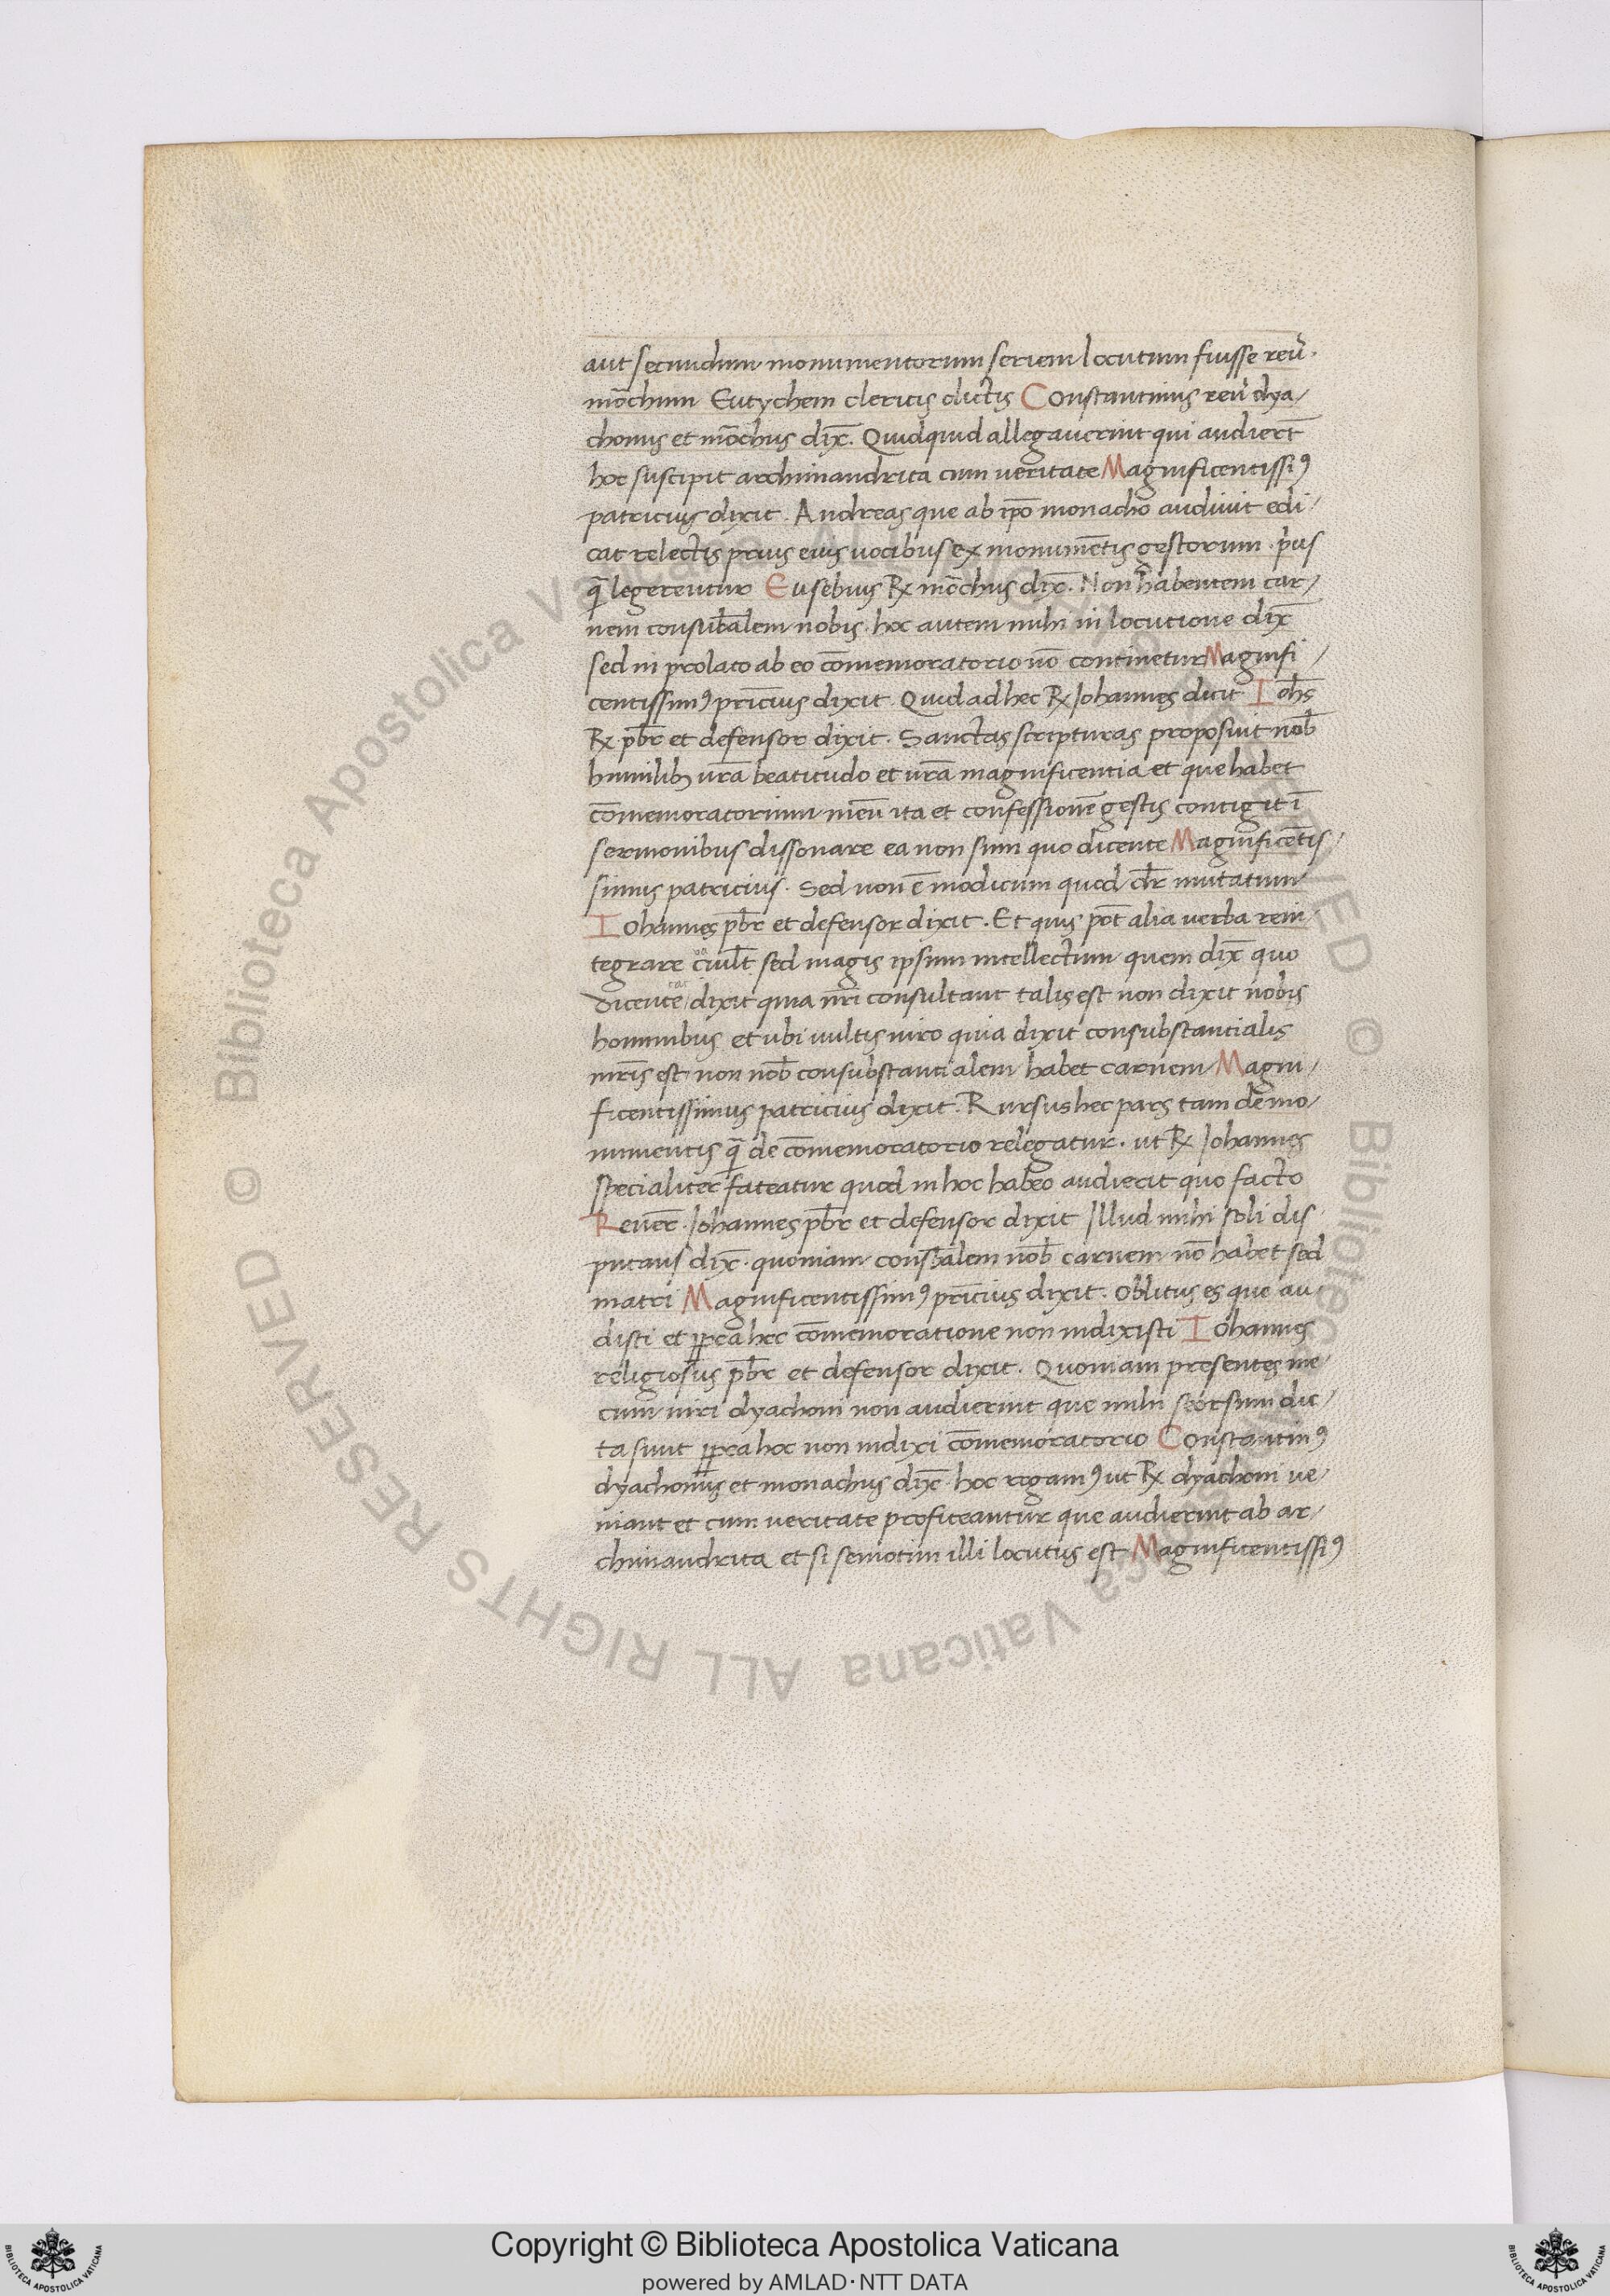 aut secundum monumentorum seriem locutum fuisse reū.
mōchum Eutychem clericis dictis Constantinus reū dya/
chonus et mōchus dix̄. Quidquid allegauerint qui audiert̄
hoc suscipit archimandrita cum veritate Magnificentissiꝰ
patricius dixit. Andreas que ab ip̄o monacho audiuit edi/
cat relectis prius eius uocibus ex monumētis gestorum. p̄us
q̄ legerentur Eusebius R̵ mōchus dix̄. Non habentem car/
nem consub̄alem nobis. hoc autem mihi in locutione dix̄
sed in prolato ab eo cōmemoratorio nō continetur Magnifi/
centissimꝰ pr̄icius dixit. Quid ad hec R̵ Johannes dicit Ioh̄s
R̵ pb̄r et defensor dixit. Sanctas scripturas proposuit nob̄
humilibꝫ ur̄a beatitudo et ur̄a magnificentia et que habet
cōmemoratorium meū ita et confessionē gestis contigit ī
sermonibus dissonare ea non sum quo dicente Magnificētis/
simus patricius. Sed non ē modicum quod dr̄ mutatum
Iohannes pb̄r et defensor dixit. Et quis pōt alia verba rein/
tegrare ciuil̄t sed magis ipsum intellectum quem dix̄ quo
dicente dixit quia nr̄i consultant talis est non dixit nobis
hominibus et ubi uultis uiro quia dixit consubstantialis
mr̄is est non nob̄ consubstantialem habet carnem Magni/
ficentissimus patricius dixit. Rursus hec pars tam de mo/
numentis q̄ de cōmemoratorio relegatur. ut R̵ Johannes
specialiter fateatur quod in hoc habeo audierit quo facto
Reuer̄. Johannes pb̄r et defensor dixit Illud mihi soli dis/
putans dix̄. quoniam consb̄alem nob̄ carnem nō habet sed
matri Magnificentissimꝰ pr̄icius dixit. Oblitus es que au/
disti et ꝓp̄ea hec cōmemoratione non indixisti Iohannes
religiosus pb̄r et defensor dixit. Quoniam presentes me/
cum uiri dyachoni non audierint que mihi seorsum dic/
ta sunt ꝓp̄ea hoc non indixi cōmemoratorio Constantinꝰ
dyachonus et monachus dix̄. hoc rogamꝰ ut R̵ dyachoni ue/
niant et cum veritate profiteantur que audierint ab ar/
chimandrita et si semotim illi locutus est Magnificentissiꝰ
© Biblioteca Apostolica Vaticana ALL RIGHTS RESERVED
Copyright © Biblioteca Apostolica Vaticana
powered by AMLAD·NTT DATA
BIBLIOTECA APOSTOLICA VATICANA
BIBLIOTECA APOSTOLICA VATICANA